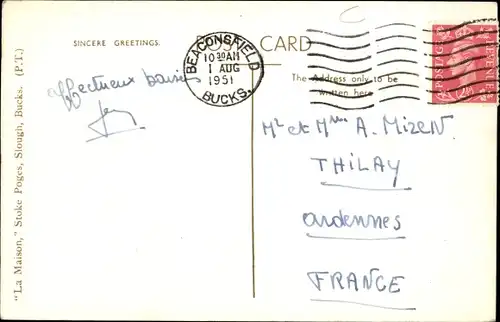 SINCERE GREETINGS.
POST CARD
BEACONSFIELD
10 30 AM
1 AUG
1951
BUCKS.
POSTAGE
The Address only to be
written here
affectueux baisers
Mr et Mme A. Mizen
THILAY
ardennes
FRANCE
"La Maison," Stoke Poges, Slough, Bucks. (P.T.)